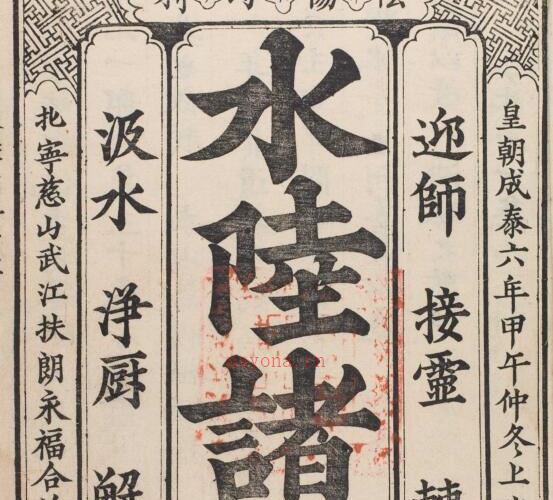 皇朝成泰六年甲午仲冬上
迎師 接靈
水陸諸
汲水 浄厨
北寧慈山武江扶朗永福合
nayona.cn